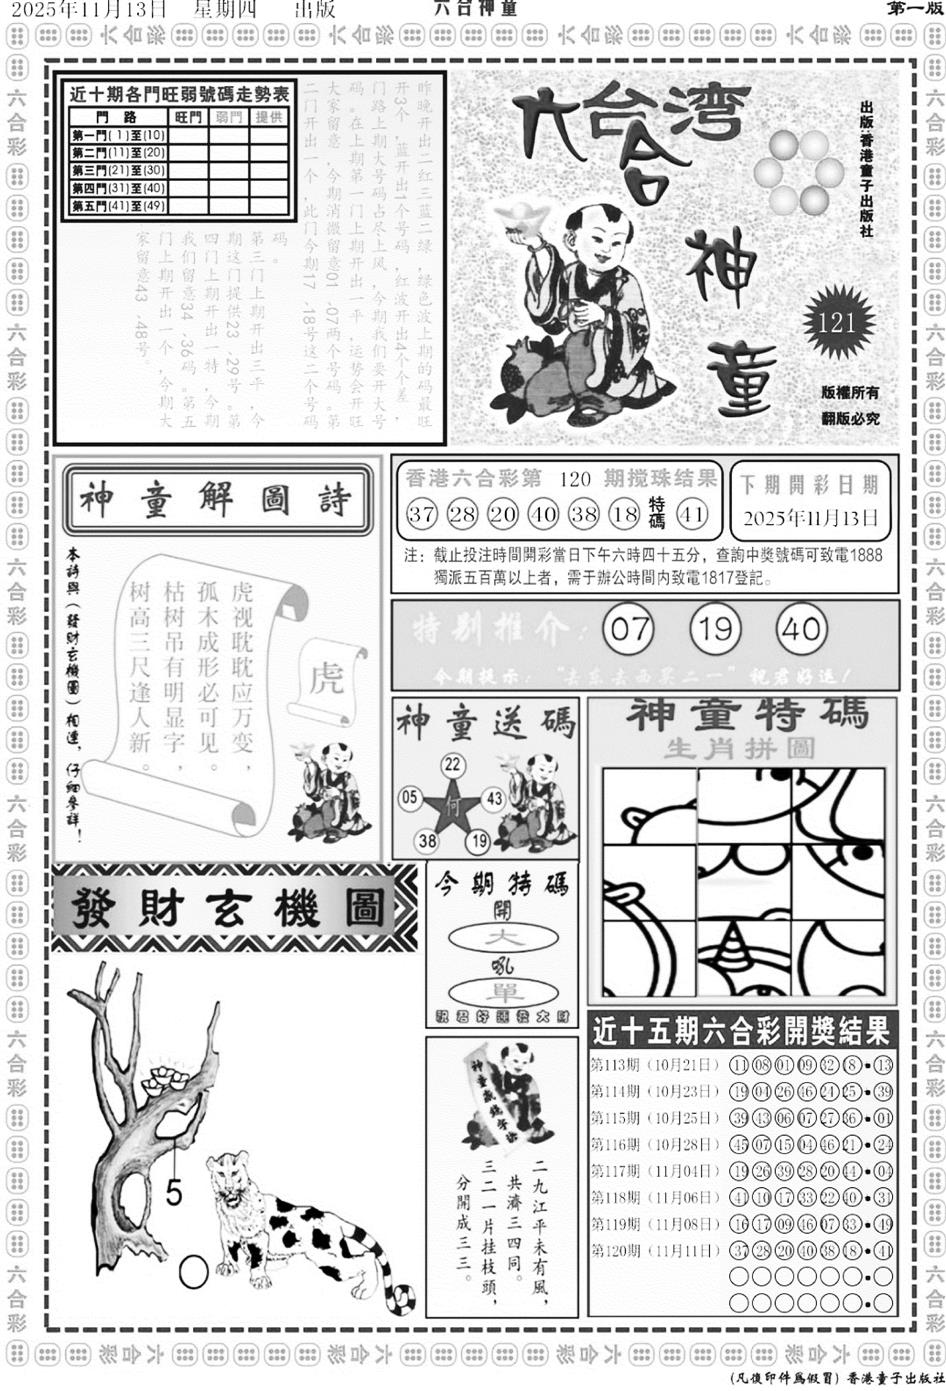 2025年11月13日　星期四　出版
六合神童
第一版
近十期各門旺弱號碼走勢表
門　路　旺門　弱門　提供
第一門(1)至(10)
第二門(11)至(20)
第三門(21)至(30)
第四門(31)至(40)
第五門(41)至(49)
昨晚开出二红三蓝二绿，绿色波上期的码最旺
开3个，蓝开出1个号码，红波开出4个个差，
门路上期大号码占尽上风，今期我们要开大号
码。在上期第一门上期开出一平，运势会开旺
大家留意，今期消微留意01、07两个号码。第
二门开出一个，此门今期17、18号这二个号码
码。
第三门上期开出三平，今
期这门提供23、29号。第
四门上期开出一特，今期
我们留意34、36码。第五
门上期开出一个，今期大
家留意43、48号。
六合
台湾
神童
出版:香港童子出版社
121
版權所有
翻版必究
神童解圖詩
本詩與（發財玄機圖）相連，仔細參詳！
虎视眈眈应万变，
孤木成形必可见。
枯树吊有明显字，
树高三尺逢人新。
虎
香港六合彩第 120 期搅珠结果
37 28 20 40 38 18 特碼 41
下期開彩日期
2025年11月13日
注：截止投注時間開彩當日下午六時四十五分，查詢中獎號碼可致電1888
獨派五百萬以上者，需于辦公時間内致電1817登記。
特别推介：07 19 40
今期提示：“去东去西买二一”祝君好运！
神童送碼
22
05 何 43
38 19
神童特碼
生肖拼圖
發財玄機圖
5
今期特碼
開
大
吼
單
祝君好運發大財
二九江平未有風，
共濟三四同。
三二一片挂枝頭，
分開成三三。
近十五期六合彩開獎結果
第113期（10月21日）11 08 01 09 32 8 · 13
第114期（10月23日）19 04 26 46 24 25 · 39
第115期（10月25日）39 43 06 07 27 36 · 01
第116期（10月28日）45 07 15 04 46 21 · 24
第117期（11月04日）19 26 39 28 20 44 · 04
第118期（11月06日）41 10 17 33 22 40 · 31
第119期（11月08日）16 17 09 46 07 33 · 49
第120期（11月11日）37 28 20 40 38 18 · 41
(凡復印件爲假冒) 香港童子出版社